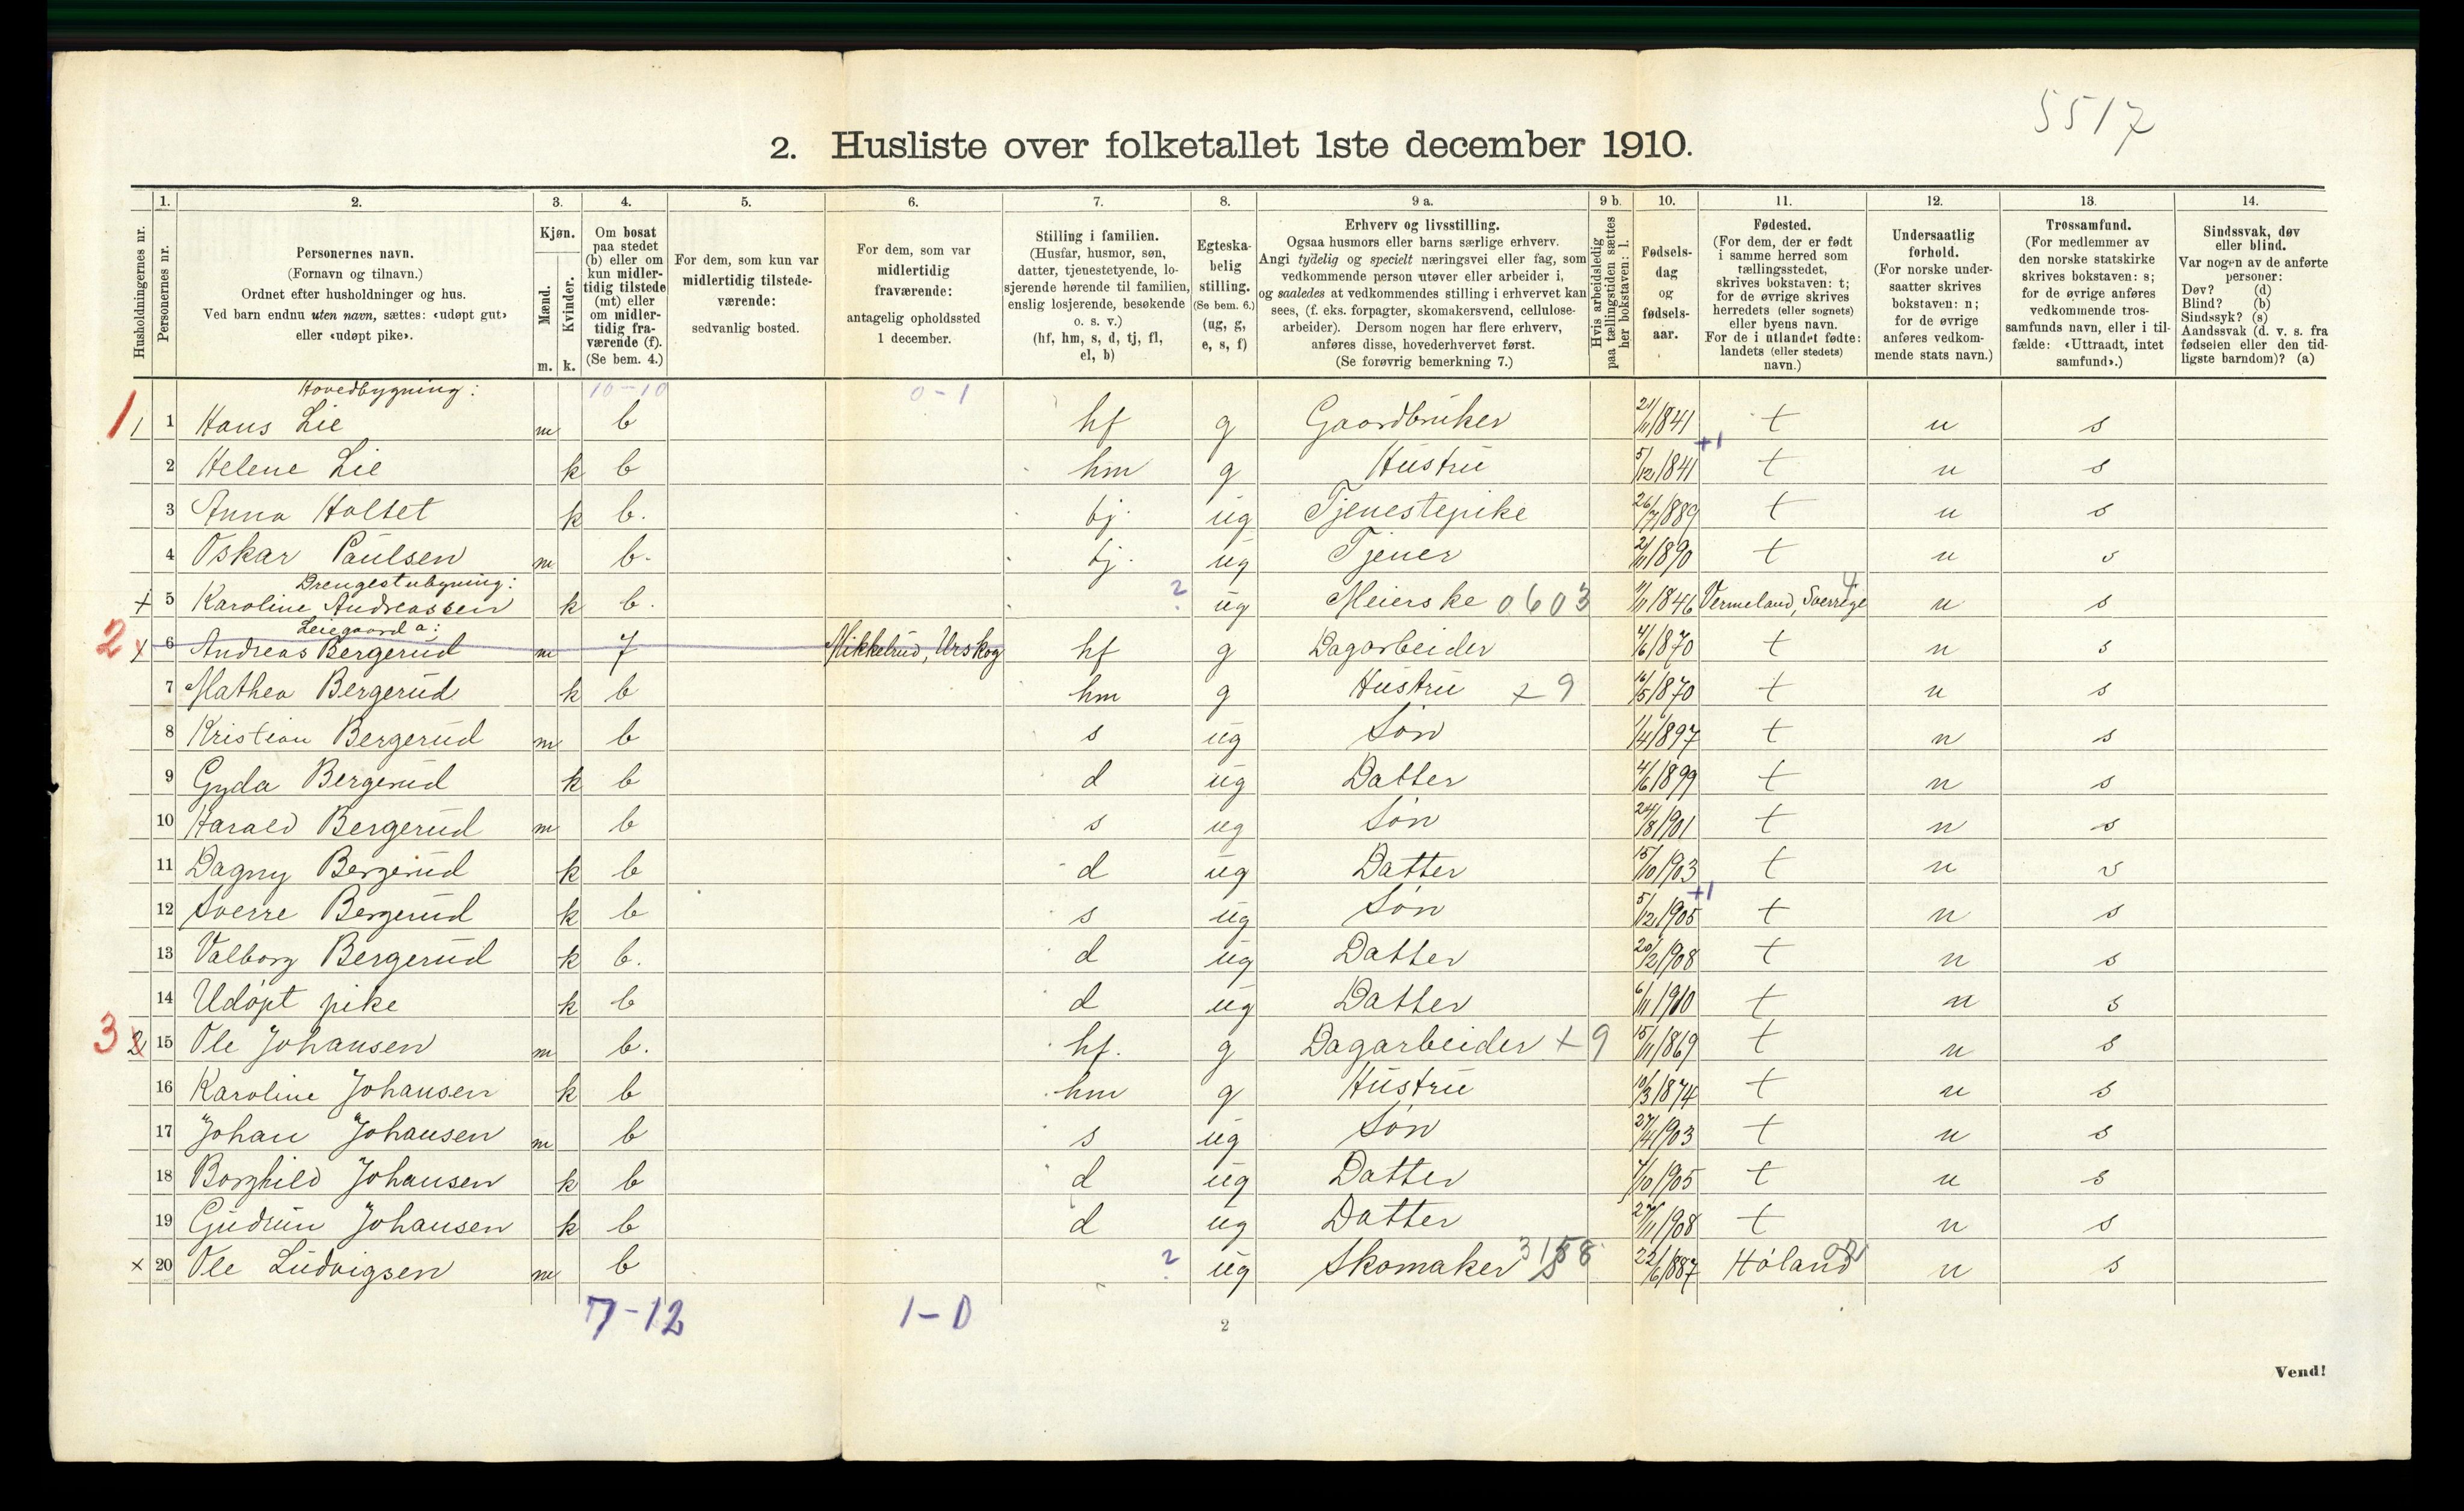 5517
2. Husliste over folketallet 1ste december 1910.
Husholdningernes nr.
1.
Personernes nr.
2.
Personernes navn.
(Fornavn og tilnavn.)
Ordnet efter husholdninger og hus.
Ved barn endnu uten navn, sættes: «udøpt gut»
eller «udøpt pike».
3.
Kjøn.
Mænd.
Kvinder.
m. k.
4.
Om bosat
paa stedet
(b) eller om
kun midler-
tidig tilstede
(mt) eller
om midler-
tidig fra-
værende (f).
(Se bem. 4.)
5.
For dem, som kun var
midlertidig tilstede-
værende:
sedvanlig bosted.
6.
For dem, som var
midlertidig
fraværende:
antagelig opholdssted
1 december.
7.
Stilling i familien.
(Husfar, husmor, søn,
datter, tjenestetyende, lo-
sjerende hørende til familien,
enslig losjerende, besøkende
o. s. v.)
(hf, hm, s, d, tj, fl,
el, b)
8.
Egteska-
belig
stilling.
(Se bem. 6.)
(ug, g,
e, s, f)
9 a.
Erhverv og livsstilling.
Ogsaa husmors eller barns særlige erhverv.
Angi tydelig og specielt næringsvei eller fag, som
vedkommende person utøver eller arbeider i,
og saaledes at vedkommendes stilling i erhvervet kan
sees, (f. eks. forpagter, skomakersvend, cellulose-
arbeider). Dersom nogen har flere erhverv,
anføres disse, hovederhvervet først.
(Se forøvrig bemerkning 7.)
9 b.
Hvis arbeidsledig
paa tællingstiden sættes
her bokstaven: l.
10.
Fødsels-
dag
og
fødsels-
aar.
11.
Fødested.
(For dem, der er født
i samme herred som
tællingsstedet,
skrives bokstaven: t;
for de øvrige skrives
herredets (eller sognets)
eller byens navn.
For de i utlandet fødte:
landets (eller stedets)
navn.)
12.
Undersaatlig
forhold.
(For norske under-
saatter skrives
bokstaven: n;
for de øvrige
anføres vedkom-
mende stats navn.)
13.
Trossamfund.
(For medlemmer av
den norske statskirke
skrives bokstaven: s;
for de øvrige anføres
vedkommende tros-
samfunds navn, eller i til-
fælde: «Uttraadt, intet
samfund».)
14.
Sindssvak, døv
eller blind.
Var nogen av de anførte
personer:
Døv? (d)
Blind? (b)
Sindssyk? (s)
Aandssvak (d. v. s. fra
fødselen eller den tid-
ligste barndom)? (a)
Hovedbygning: 10-10 0-1
1 1 1 Hans Lie m b hf g Gaardbruker 21/11 1841 t n s
2 Helene Lie k b hm g Hustru 5/12 1841 +1 t n s
3 Anna Holtet k b. tj. ug Tjenestepike 26/7 1889 t n s
4 Oskar Paulsen m b. tj. ug Tjener 2/11 1890 t n s
Drengestubygning:
+ 5 Karoline Andreassen k b. ? ug Meierske 0603 1846 Vermeland, Sverrige 4 n s
Leiegaard a:
2 x 6 Andreas Bergerud m f Mikkelrud, Urskog hf g Dagarbeider 4/6 1870 t n s
7 Mathea Bergerud k b hm g Hustru x 9 16/5 1870 t n s
8 Kristian Bergerud m b s ug Søn 1/4 1897 t n s
9 Gyda Bergerud k b d ug Datter 4/6 1899 t n s
10 Harald Bergerud m b s ug Søn 24/8 1901 t n s
11 Dagny Bergerud k b d ug Datter 15/10 1903 t n s
12 Sverre Bergerud k b s ug Søn 5/12 1905 +1 t n s
13 Valborg Bergerud k b. d ug Datter 20/2 1908 t n s
14 Udøpt pike k b d ug Datter 6/11 1910 t n s
3 2 15 Ole Johansen m b. hf. g Dagarbeider x 9 15/11 1869 t n s
16 Karoline Johansen k b hm g Hustru 10/3 1874 t n s
17 Johan Johansen m b s ug Søn 27/4 1903 t n s
18 Borghild Johansen k b d ug Datter 7/10 1905 t n s
19 Gudrun Johansen k b d ug Datter 27/11 1908 t n s
x 20 Ole Ludvigsen m b ? ug Skomaker 3158 22/6 1887 Høland 02 n s
7-12 1-0
2
Vend!